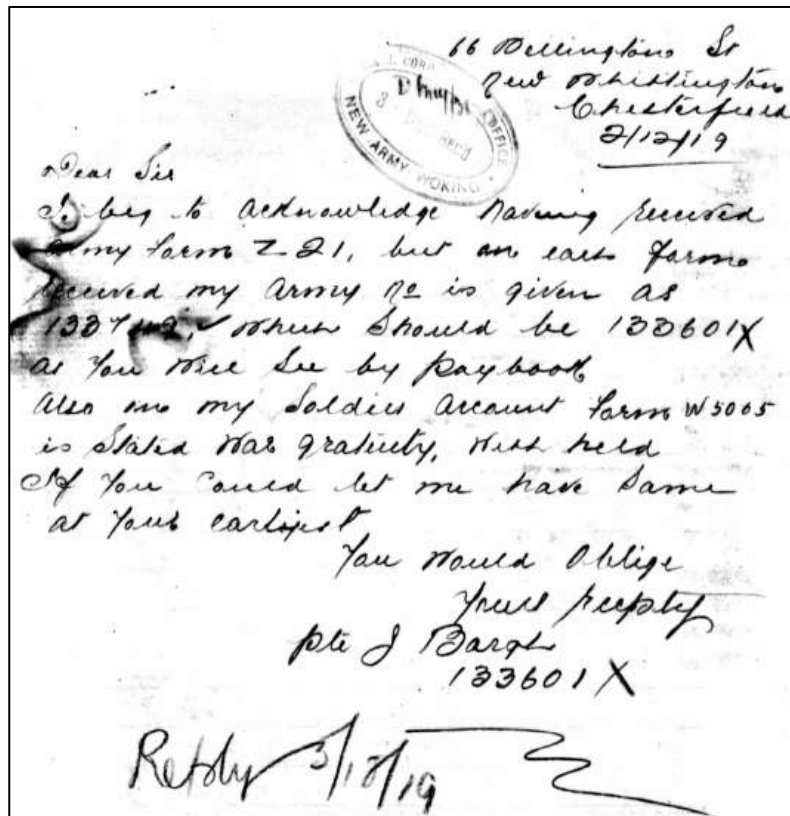 66 Wellington St
New Whittington
Chesterfield
2/12/19
OFFICE
NEW ARMY WOKING
Dear Sir
I beg to acknowledge having received
Army Form Z 21, but on each form
received my Army No is given as
which should be 133601 X
as you will see by paybook
Also on my Soldiers Account Form W 5065
is stated War gratuity, with held
If you could let me have same
at your earliest
You would Oblige
Yours
Pte J Bargh
133601 X
Reply 3/12/19